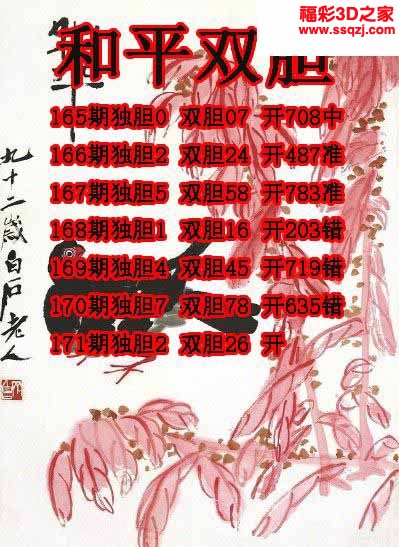 福彩3D之家
www.ssqzj.com
和平双胆
165期独胆0 双胆07 开708中
166期独胆2 双胆24 开487准
167期独胆5 双胆58 开783准
168期独胆1 双胆16 开203错
169期独胆4 双胆45 开719错
170期独胆7 双胆78 开635错
171期独胆2 双胆26 开
九十二岁白石老人